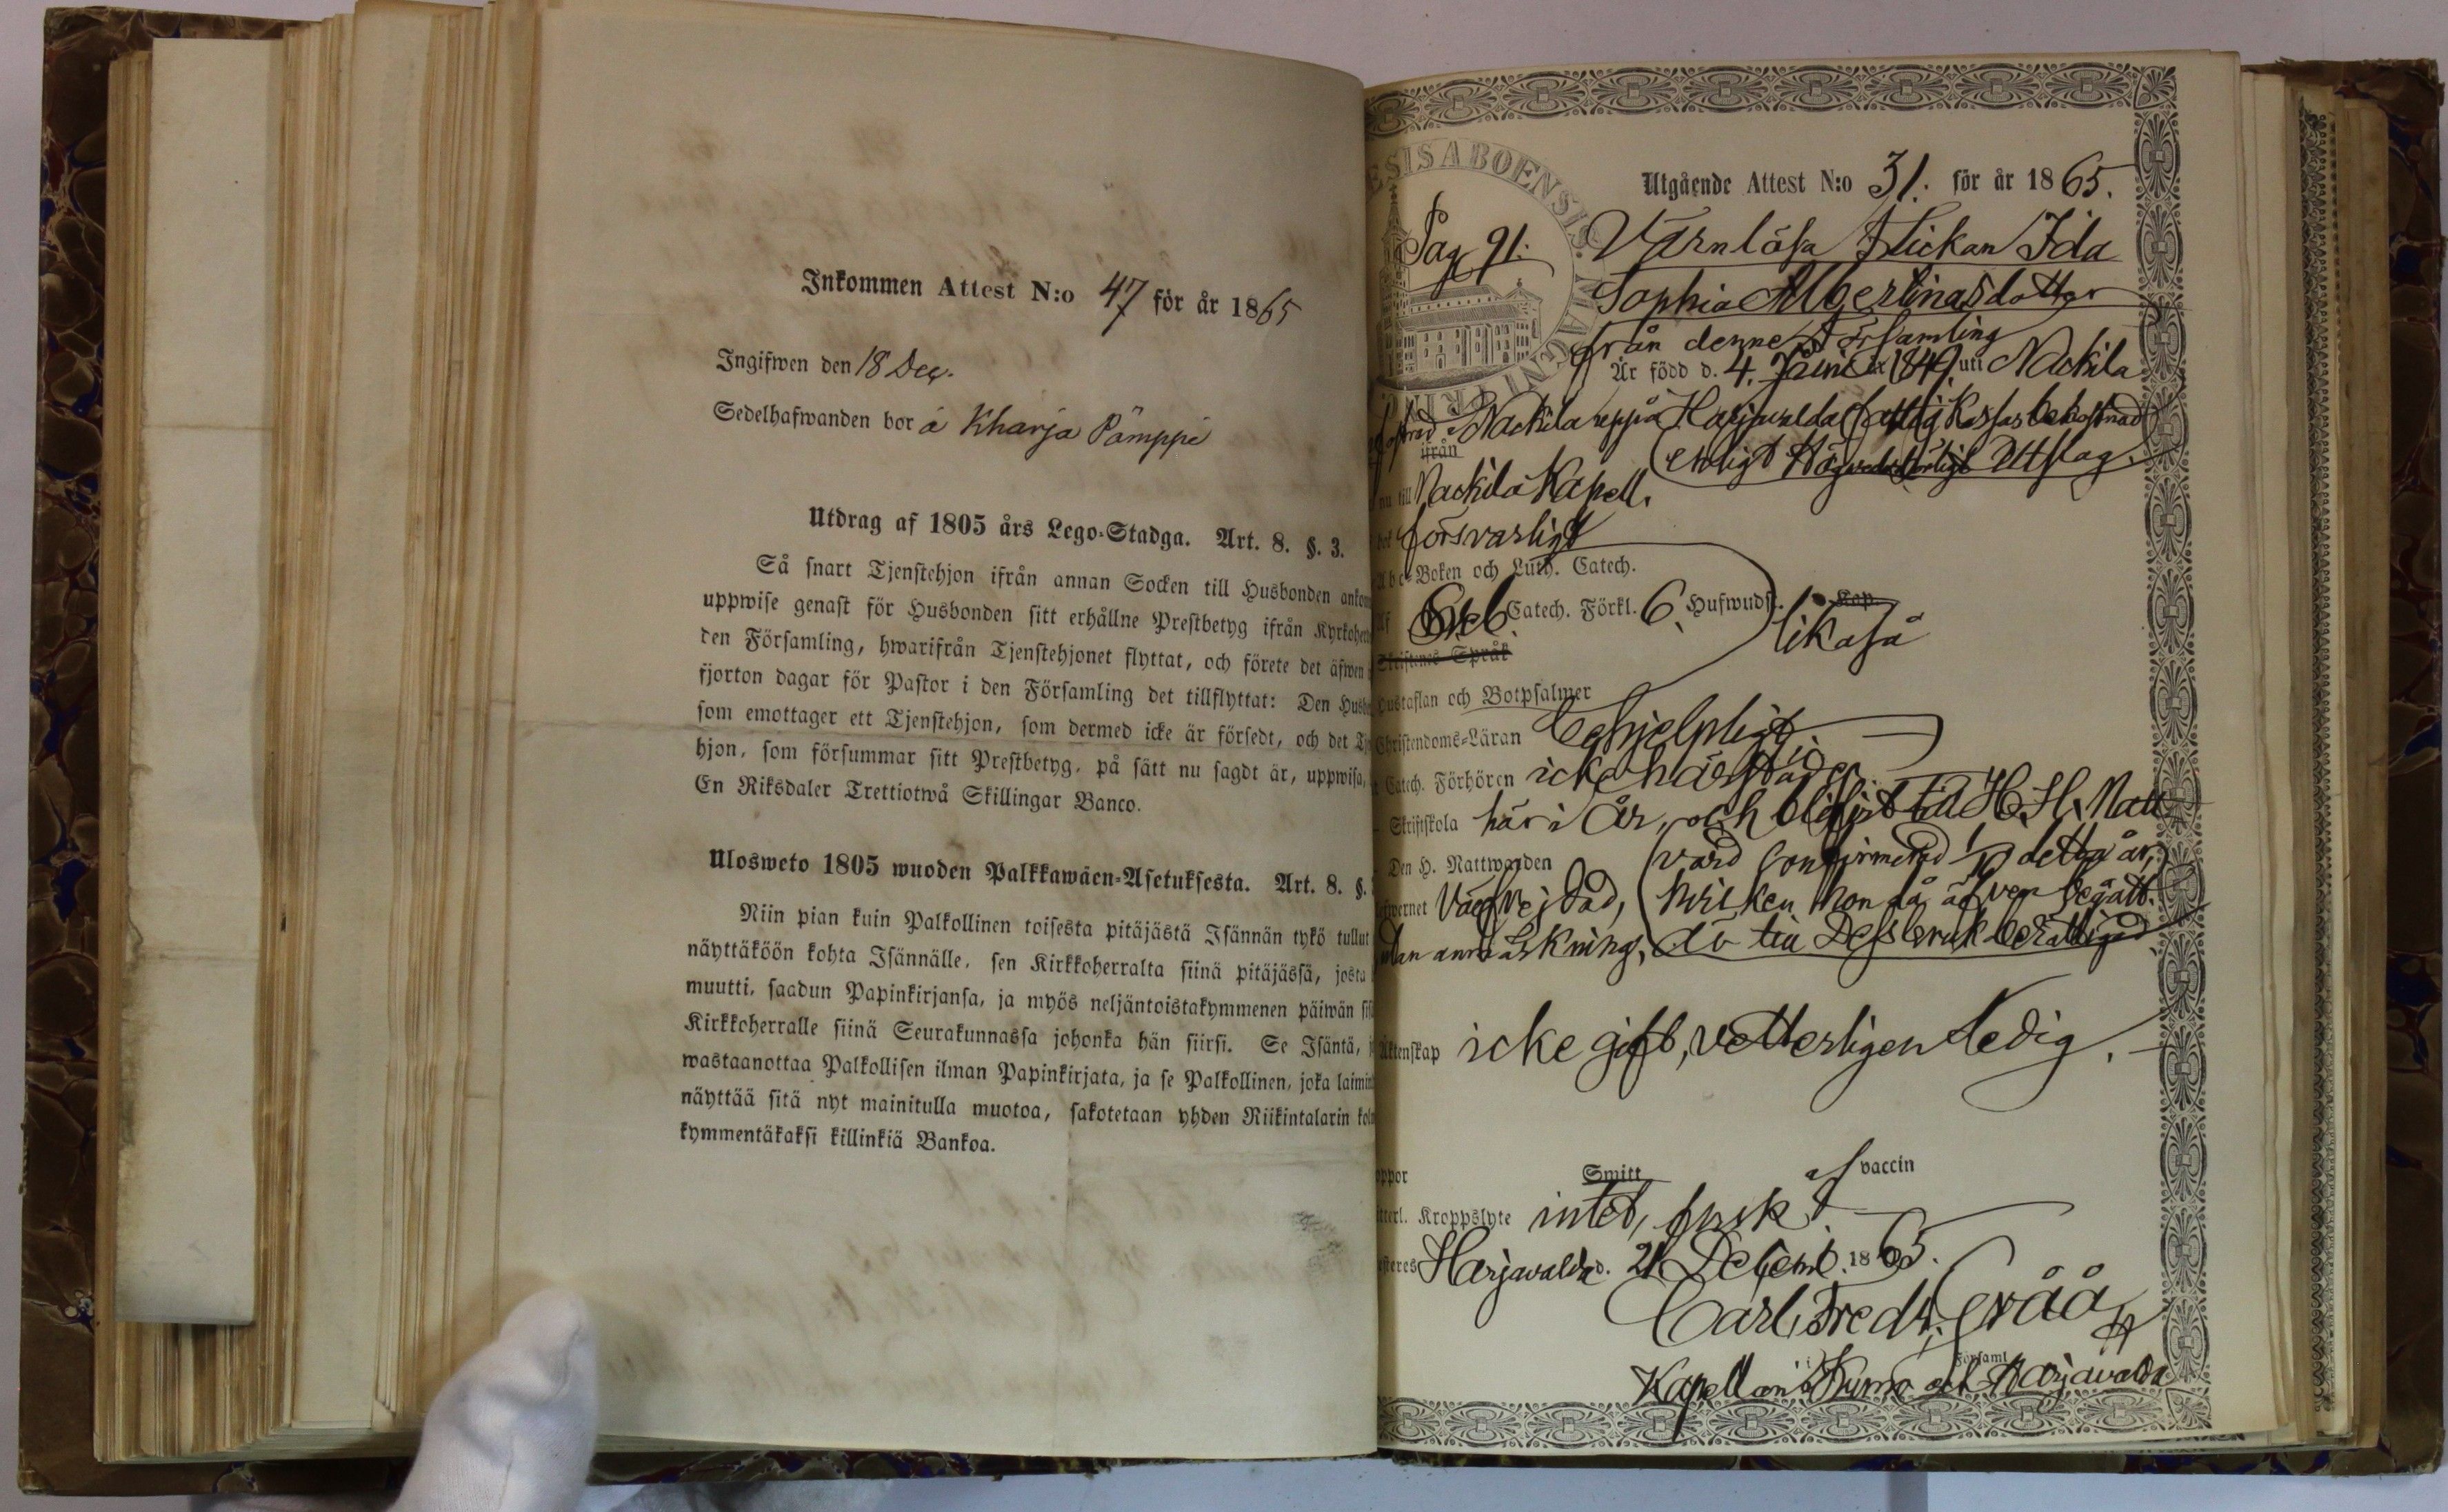 Inkommen Attest N:o 47 för år 1865
Ingifwen den 18 Dec.
Sedelhafwanden bor å Kharja Pämppi
Utdrag af 1805 års Lego-Stadga. Art. 8. §. 3.
Så snart Tjenstehjon ifrån annan Socken till Husbonden ankom
uppwise genast för Husbonden sitt erhållne Prestbetyg ifrån Kyrkohe
den Församling, hwarifrån Tjenstehjonet flyttat, och förete det äfwen
fjorton dagar för Pastor i den Församling det tillflyttat: Den Husbo
som emottager ett Tjenstehjon, som dermed icke är försedt, och det Tje
hjon, som försummar sitt Prestbetyg, på sätt nu sagdt är, uppwisa,
En Riksdaler Trettiotwå Skillingar Banco.
Ulosweto 1805 wuoden Palkkawäen-Asetuksesta. Art. 8. §.
Niin pian kuin Palkollinen toisesta pitäjästä Isännän tykö tullut
näyttäköön kohta Isännälle, sen Kirkkoherralta siinä pitäjässä, josta
muutti, saadun Papinkirjansa, ja myös neljäntoistakymmenen päiwän sis
Kirkkoherralle siinä Seurakunnassa johonka hän siirsi. Se Isäntä, j
wastaanottaa Palkollisen ilman Papinkirjata, ja se Palkollinen, joka laimin
näyttää sitä nyt mainitulla muotoa, sakotetaan yhden Riikintalarin kolm
kymmentäkaksi killinkiä Bankoa.
ESIS ABOENSIS
Utgående Attest N:o 31. för år 1865.
Pag 91. Värnlösa Flickan Ida
Sophia Albertinasdotter
från denne Församling
Är född d. 4. Junii år 1849 uti Nackila
Nackila uppå Harjavalda fattig Kassas bekostnad
ifrån
enligt Högvederbörligt Utslag.
nu till Nackila Kapell.
bok försvarligt
Abc-Boken och Luth. Catech.
Af Sveb. Catech. Förkl. 6. Hufwudst. Kap.
likaså
Skriftenes Språk
Hustaflan och Botpsalmer
Christendoms-Läran behjelpligt
Catech. Förhören icke
Skriftskola här i år, och blifvit till H. H. Natt
Den H. Nattwarden vard confirmerad detta år,
wernet väl vejdad, hvilken hon då äfven begått.
utan anmärkning, då till Dess bruk berättigad
Äktenskap icke gift, vetterligen ledig.
oppor Smitt af vaccin
tterl. Kroppslyte intet, frisk
esteres Harjavalda d. 21 Decemb. 1865.
Carl Fredr. Gråå
Kapellan i Kumo och Harjavalda
Församl